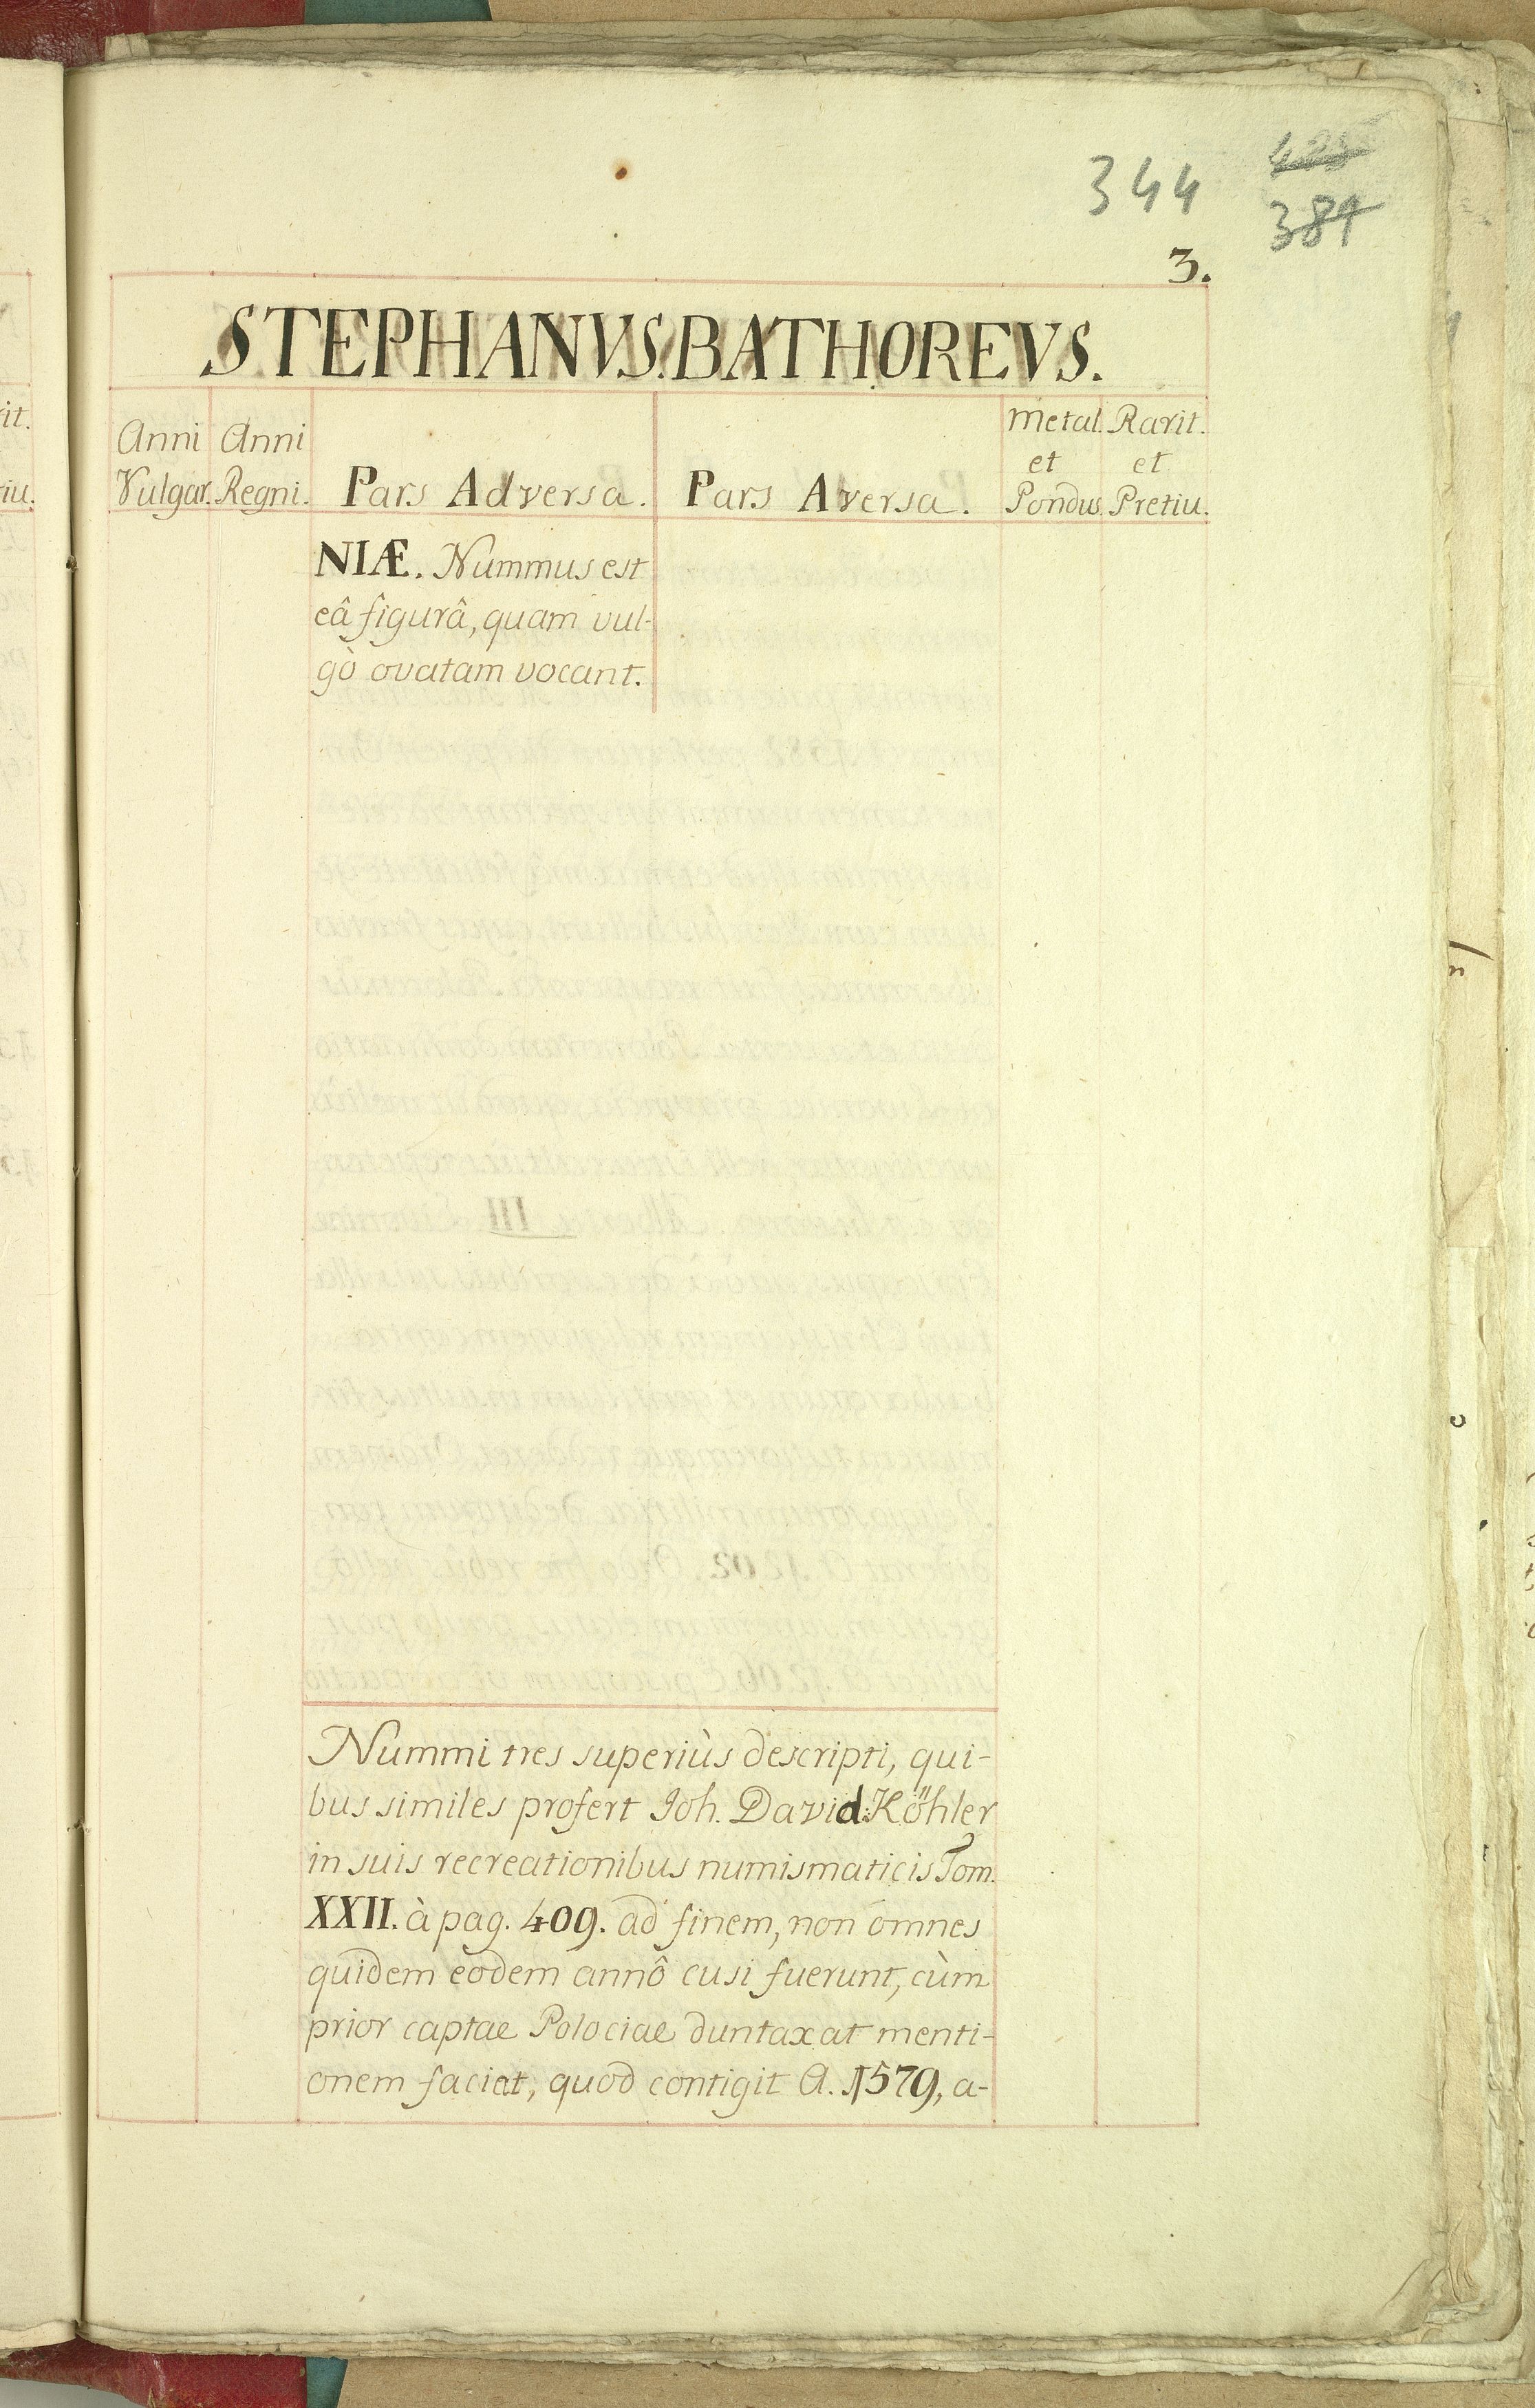 344
381
3.
STEPHANVS.BATHOREVS.
Anni Vulgar.
Anni Regni.
Pars Adversa.
Pars Aversa.
Metal. et Pondus.
Rarit. et Pretiu.
NIÆ. Nummus est
eâ figurâ, quam vul-
gò ovatam vocant.
Nummi tres superiùs descripti, qui-
bus similes profert Joh. David Köhler
in suis recreationibus numismaticis Tom.
XXII. à pag. 409. ad finem, non omnes
quidem eodem annô cusi fuerunt, cùm
prior captae Polociae duntaxat menti-
onem faciat, quod contigit A. 1579, a-